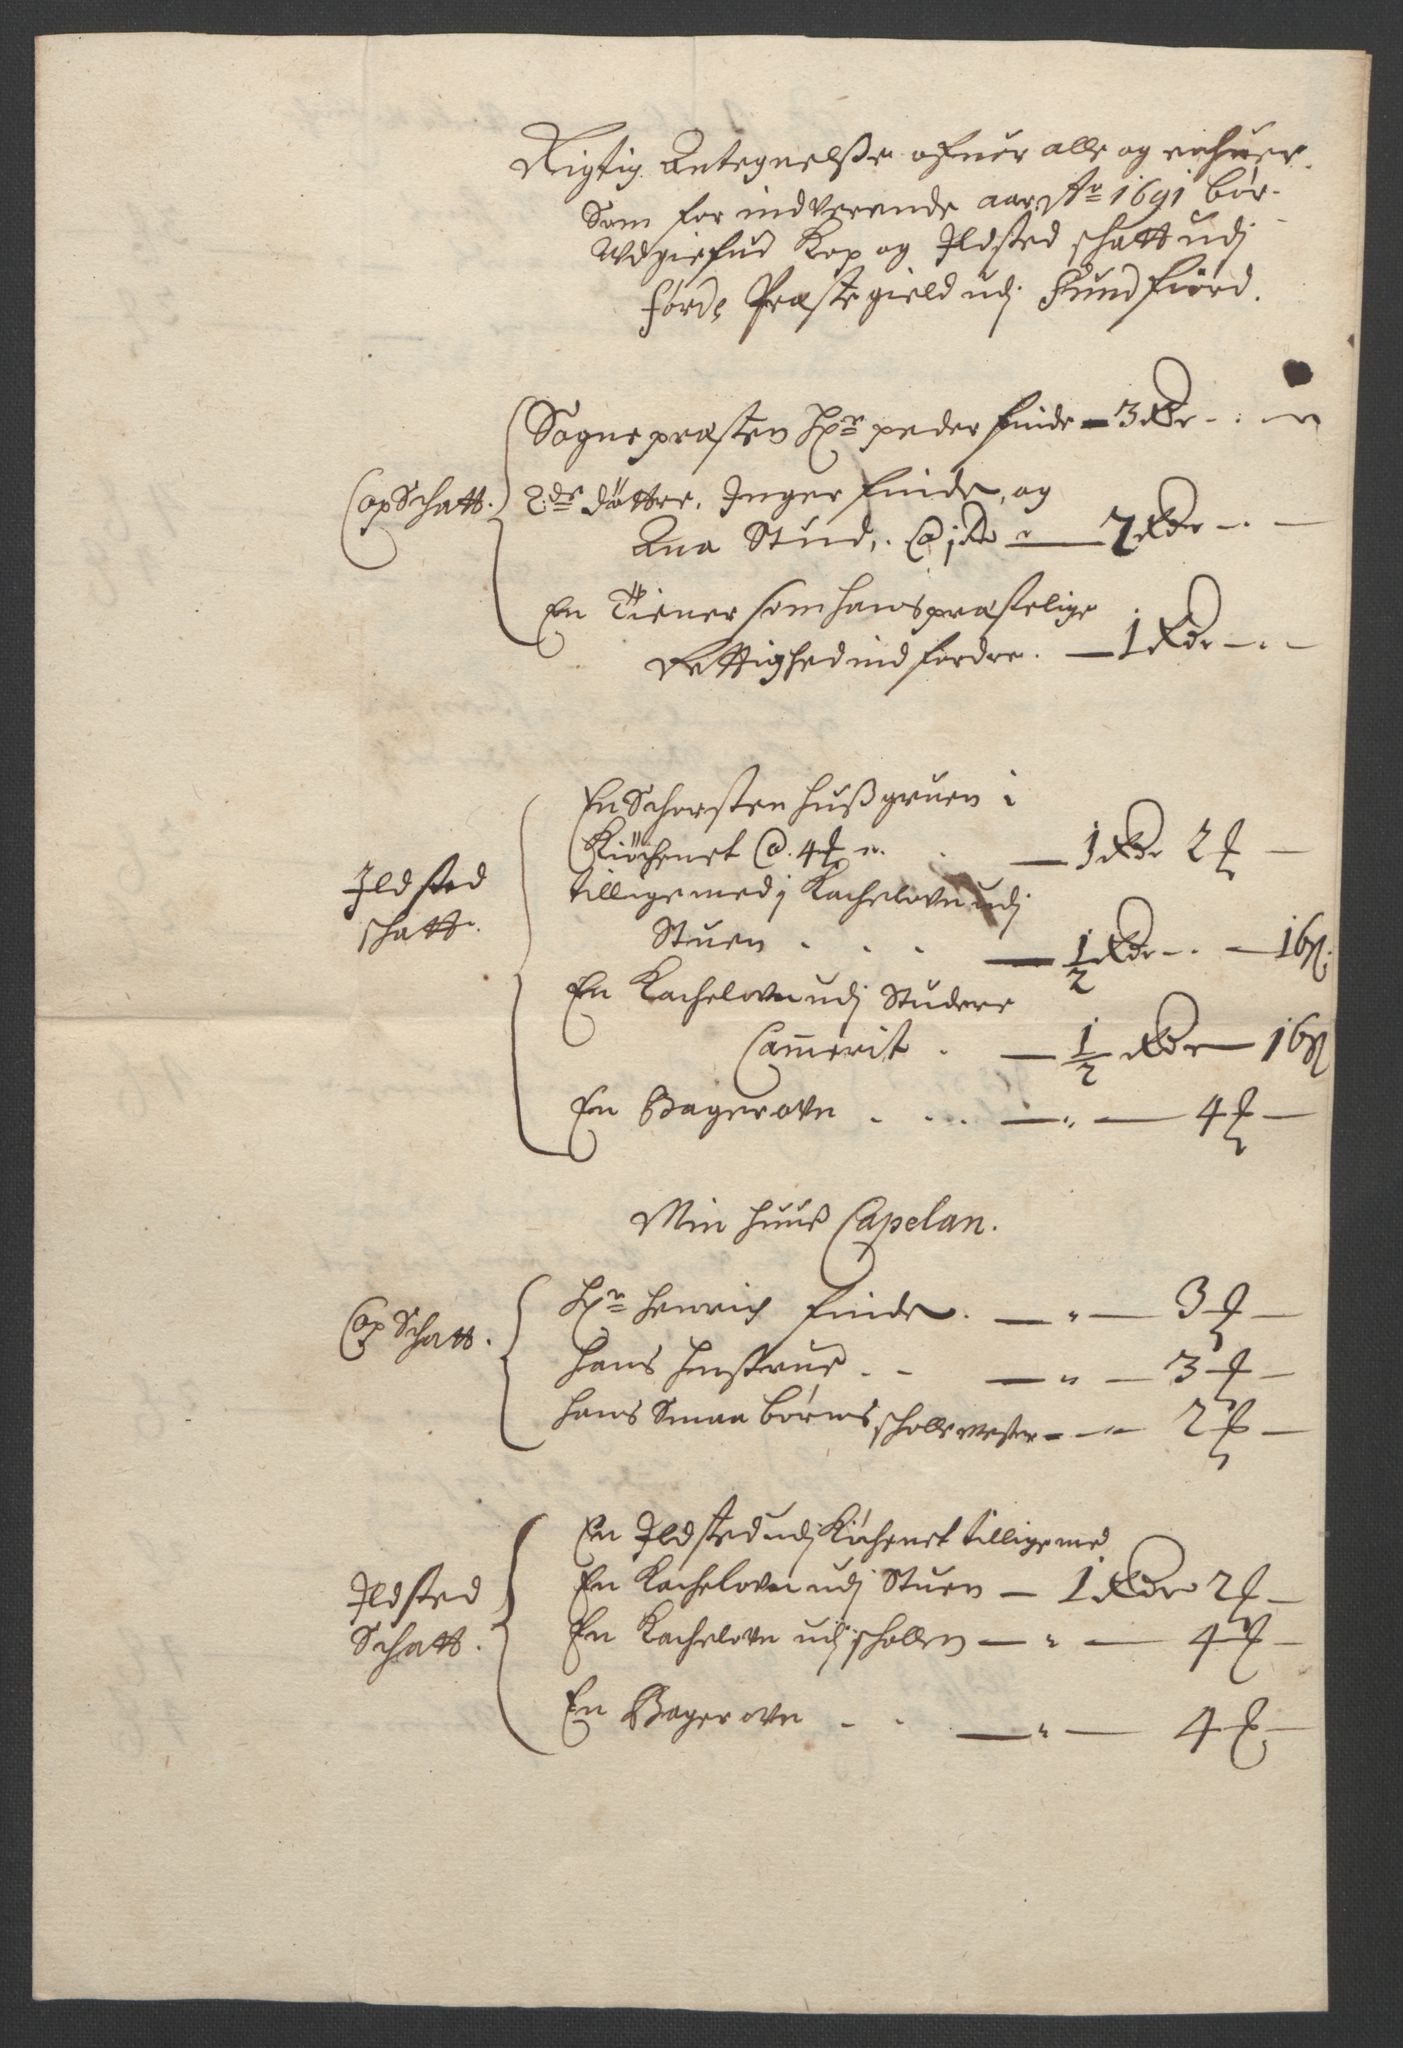 Rigtig Antegnelsse ofuer alle og enhuer
Som for indverende aar Ao 1691 bør
Udgiefue Kop og Ildsted schatt udj
Førde Præstegield udj Sundfiord.
CopSchatt.
Sognepræsten Hr peder finde – 3 Rdr – . –
2de døttre, Inger finde, og
Ana Stud, @ 1 Rd – 2 Rdr – . –
En Tiener som hans præstelige
Rettighed indfordre. – 1 Rdr – . –
Ildsted
schatt.
En Schorsten hussgruen i
Kiöchenet @ 4 ₰ – 1 Rdr 2 ₰ –
tillige med j Kachelovn udj
Stuen . . . – 1/2 Rdr – . – 16 ß.
En Kachelovn udj Studere
Cam̄erit . – 1/2 Rdr – 16 ß
En Bagerovn . . . . – " – 4 ₰ –
Min huus Capelan.
Cop Schatt.
Hr Henrich finde. – " – 3 ₰ –
Hans Hustrue . . – " – 3 ₰ –
Hans Smaa børns scholemester – " – 2 ₰ –
Ildsted
Schatt.
En Ildsted udj Kiöchenet tillige med
En Kachelovn udj Stuen – 1 Rdr 2 ₰ –
En Kachelovn udj scholen – " – 4 ₰ –
En Bagerovn . . – " – 4 ₰ –